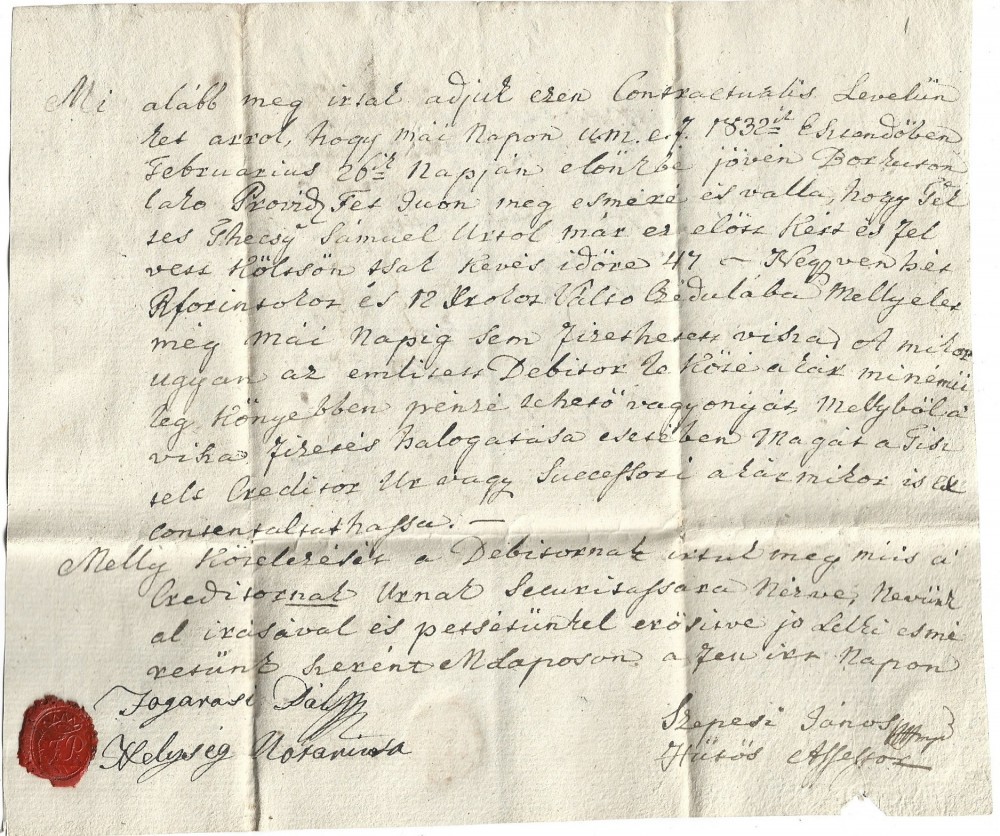 Mi alább meg irtak adjuk ezen Contractualis Levelün
ket arrol, hogy mái Napon u.m. e. f. 1832ik Esztendőben
Februarius 26ik Napján előnkbe jövén Borkuton
lako Provid Fét Iuon meg esméré és vallá, hogy Tek
tes Thecsy Sámuel Urtol már ez előtt kért és fel
vett költsön tsak kevés időre 47 – Negyven hét
Rforintokot és 12 Xrokot Válto Czédulába Mellyeket
még mái Napig sem fizethetett viszsza, A mikor
ugyan az emlitett Debitor le köté akár minémü
leg könyebben pénzé tehető vagyonját, Mellyből á
visza fizetés halogatása esetében Magát a Tisz
telt Creditor Ur vagy Successori akármikor is
contentáltathassa. –
Melly kötelezését a Debitornak irtuk meg mi is á
Creditornak Urnak Securitassára Nézve, Nevünk
al irásával és petsétünkel erősitve jo Lelki esmé
retünk szerént MLaposon a fen irt Napon
Fogarasi Pál
Helység Notariussa
Szepesi János mp
Hütös Assessor
FP